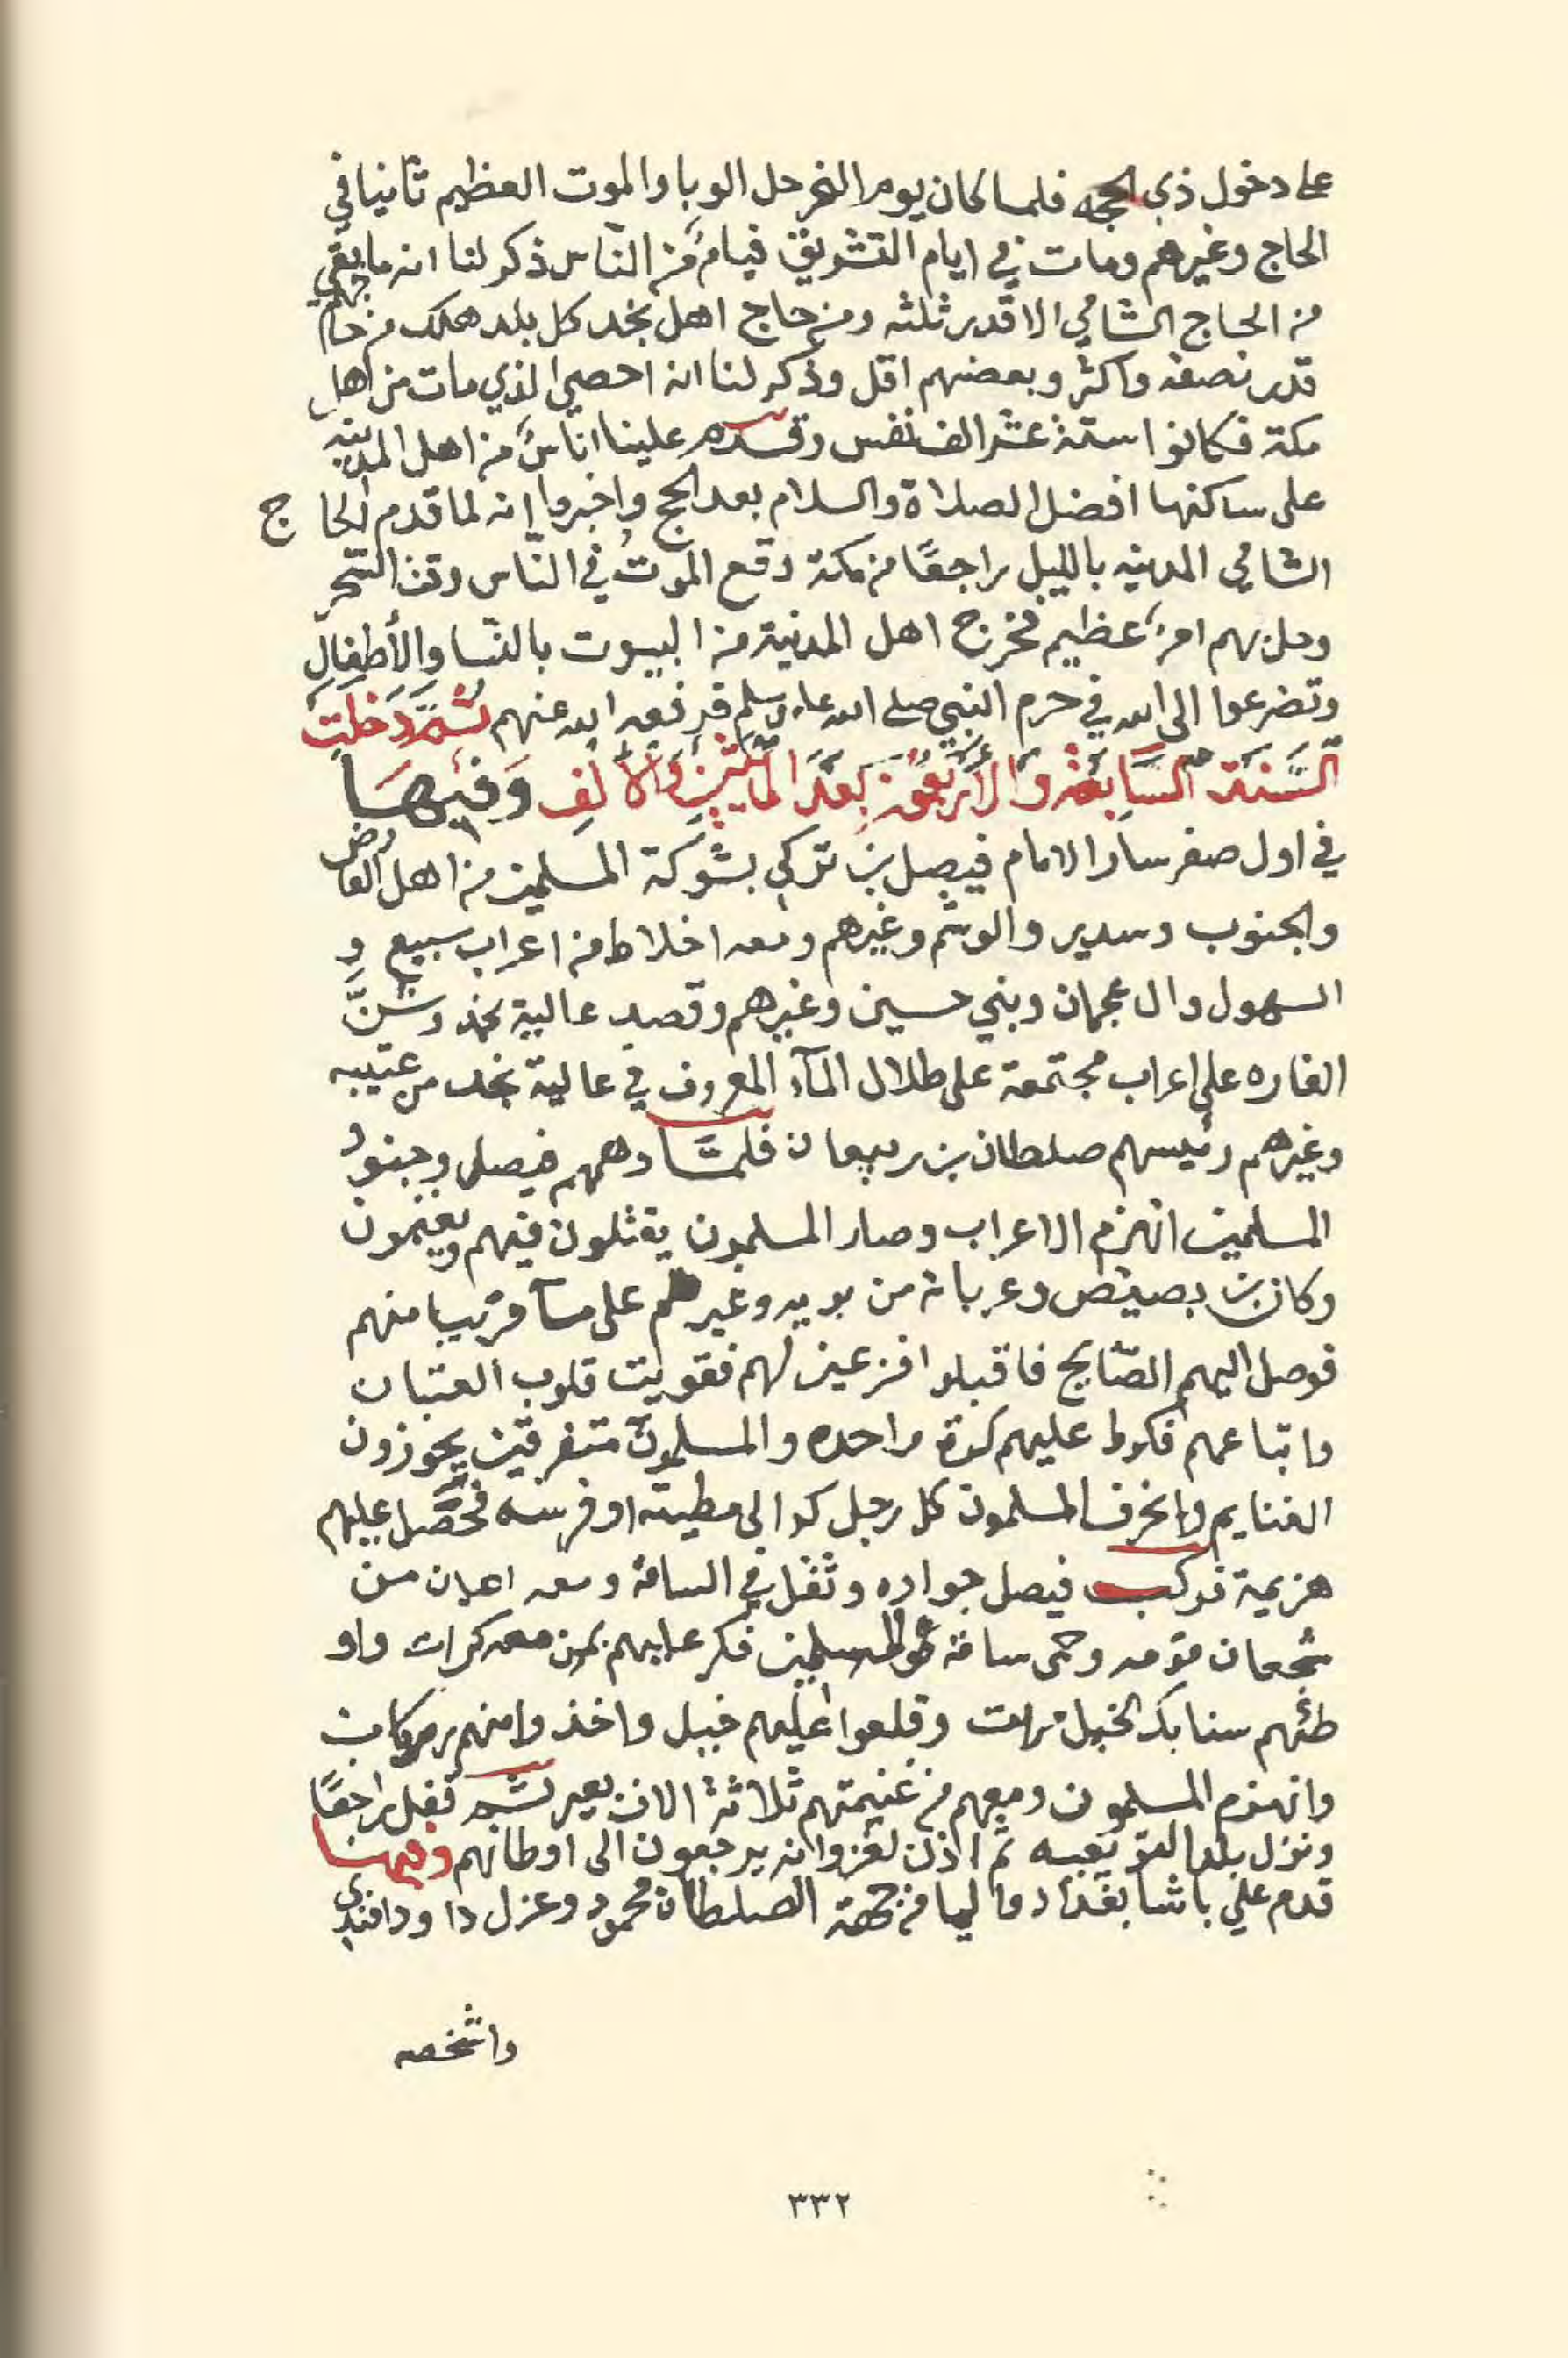 على دخول ذي الحجه فلما كان يوم النحر حل الوبا والموت العظيم ثانيا في
الحاج وغيرهم ومات في ايام التشريق فيامٌ من النّاس ذكر لنا انه ما بقي
من الحاج الشامي الا قدر ثلثه ومن حاج اهل نجد كل بلد هلك من حاجهم
قدر نصفه واكثر وبعضهم اقل وذكر لنا انه احصي الذي مات من اهل
مكة فكانوا ستة عشر الف نفس وقدم علينا اناسٌ من اهل المدينه
على ساكنها افضل الصلاة والسلام بعد الحج واخبروا انه لما قدم الحاج
الشامي المدينه بالليل راجعًا من مكة وقع الموتُ في الناس وقت السّحر
وحل بهم امرٌ عظيم فخرج اهل المدنية من البيوت بالنسا والأطفالِ
وتضرعوا الى الله في حرم النبي صلى الله عليه وسلم فرفعه الله عنهم ثُمَّ دَخَلَت
السَّنَة السَّابعَة والأربَعُونَ بَعْدَ المائتَينِ والألفِ وَفيهَا
في اول صفر سار الامام فيصل بن تركي بشوكة المسلمين من اهل العارض
والجنوب وسدير والوشم وغيرهم ومعه اخلاط من اعراب سبيع و
السهول وال عجمان وبني حسين وغيرهم وقصد عالية نجد وشنَّ
الغاره على اعراب مجتمعة على طلال المآء المعروف في عالية نجد من عتيبه
وغيرهم رئيسهم صلطان بن ربيعان فلمَّا دهمهم فيصل وجنودُ
المسلمين انهزم الاعراب وصار المسلمون يقتلون فيهم ويغنمون
وكان بن بصيص وعربانه من بريه وغيرهم على مآ قريبا منهم
فوصل اليهم الصّايح فاقبلوا فزعين لهم فقويت قلوب العتبان
واتباعهم فكروا عليهم كرة واحده والمسلمون متفرقين يحوزون
الغنايم وانحرف المسلمون كل رجل كر الى مطيته او فرسه فحصل عليهم
هزيمة فركب فيصل جواده وثقل في الساقة ومعه اعيان من
شجعان قومه وحمى ساقة المسلمين فكر عليهم بمن معه كرات واو
طئهم سنابك الخيل مرات وقلعوا عليهم خيل واخذوا منهم ركاب
وانهزم المسلمون ومعهم من غنيمتهم ثلاثة الاف بعير ثم قفل راجعًا
ونزل بلد القويعيه ثم اذن لغزوانه يرجعون الى اوطانهم وفيها
قدم علي باشا بغداد واليا من جهة الصلطان محمود وعزل داود افندي
واشخصه
٣٣٢